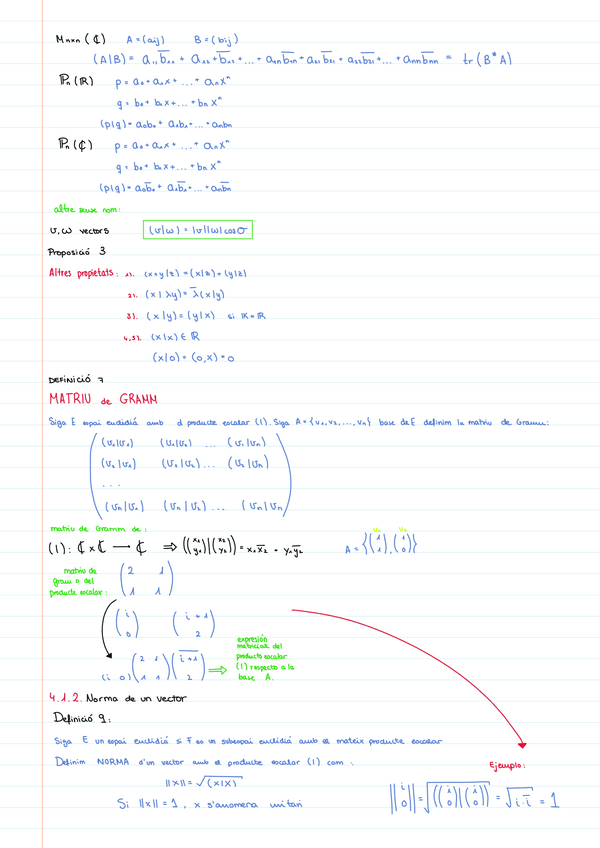 Mnxn (ℂ) A = (aij) B = (bij)
(A|B) = a₁₁b̅₁₁ + a₁₂b̅₁₂ + ... + a₁nb̅₁n + a₂₁b̅₂₁ + a₂₂b̅₂₁ + ... + annb̅nn = tr (B* A)
ℙn (ℝ) p = a₀ + a₁x + ... + anxⁿ
q = b₀ + b₁x + ... + bn xⁿ
(p|q) = a₀b₀ + a₁b₁ + ... + anbn
ℙn (ℂ) p = a₀ + a₁x + ... + anxⁿ
q = b₀ + b₁x + ... + bn xⁿ
(p|q) = a₀b̅₀ + a₁b̅₁ + ... + anb̅n
altre seuse nom:
v, w vectors (v|w) = |v||w| cos σ
Proposició 3
Altres propietats: 1). (x+y|z) = (x|z) + (y|z)
2). (x|λy) = λ̅(x|y)
3). (x|y) = (y|x) si K = ℝ
4,5). (x|x) ∈ ℝ
(x|0) = (0,x) = 0
DEFINICIÓ 7
MATRIU de GRAMM
Siga E espai euclidià amb el producte escalar (|). Siga A = {v₁, v₂, ..., vn} base de E definim la matriu de Gramm:
(v₁|v₁) (v₁|v₂) ... (v₁|vn)
(v₂|v₁) (v₂|v₂) ... (v₂|vn)
...
(vn|v₁) (vn|v₂) ... (vn|vn)
matriu de Gramm de:
(|): ℂ x ℂ → ℂ ⇒ ((x₁ y₁)|(x₂ y₂)) = x₁x̅₂ + y₁y̅₂ A = {(1 1), (1 0)} v₁ v₂
matriu de
gram o del
producte escalar:
2 1
1 1
(i 0) (i+1 2)
(i 0) (2 1 1 1) (i+1 2) ⇒
expresión
matricial del
producto escalar
(|) respecto a la
base A.
4.1.2. Norma de un vector
Definició 9:
Siga E un espai euclidià si F es un subespai euclidià amb el mateix producte escalar
Definim NORMA d'un vector amb el producte escalar (|) com:
Ejemplo:
||x|| = √(x|x)
Si ||x|| = 1, x s'anomera unitari
||i 0|| = √((i 0)|(i 0)) = √i·i̅ = 1